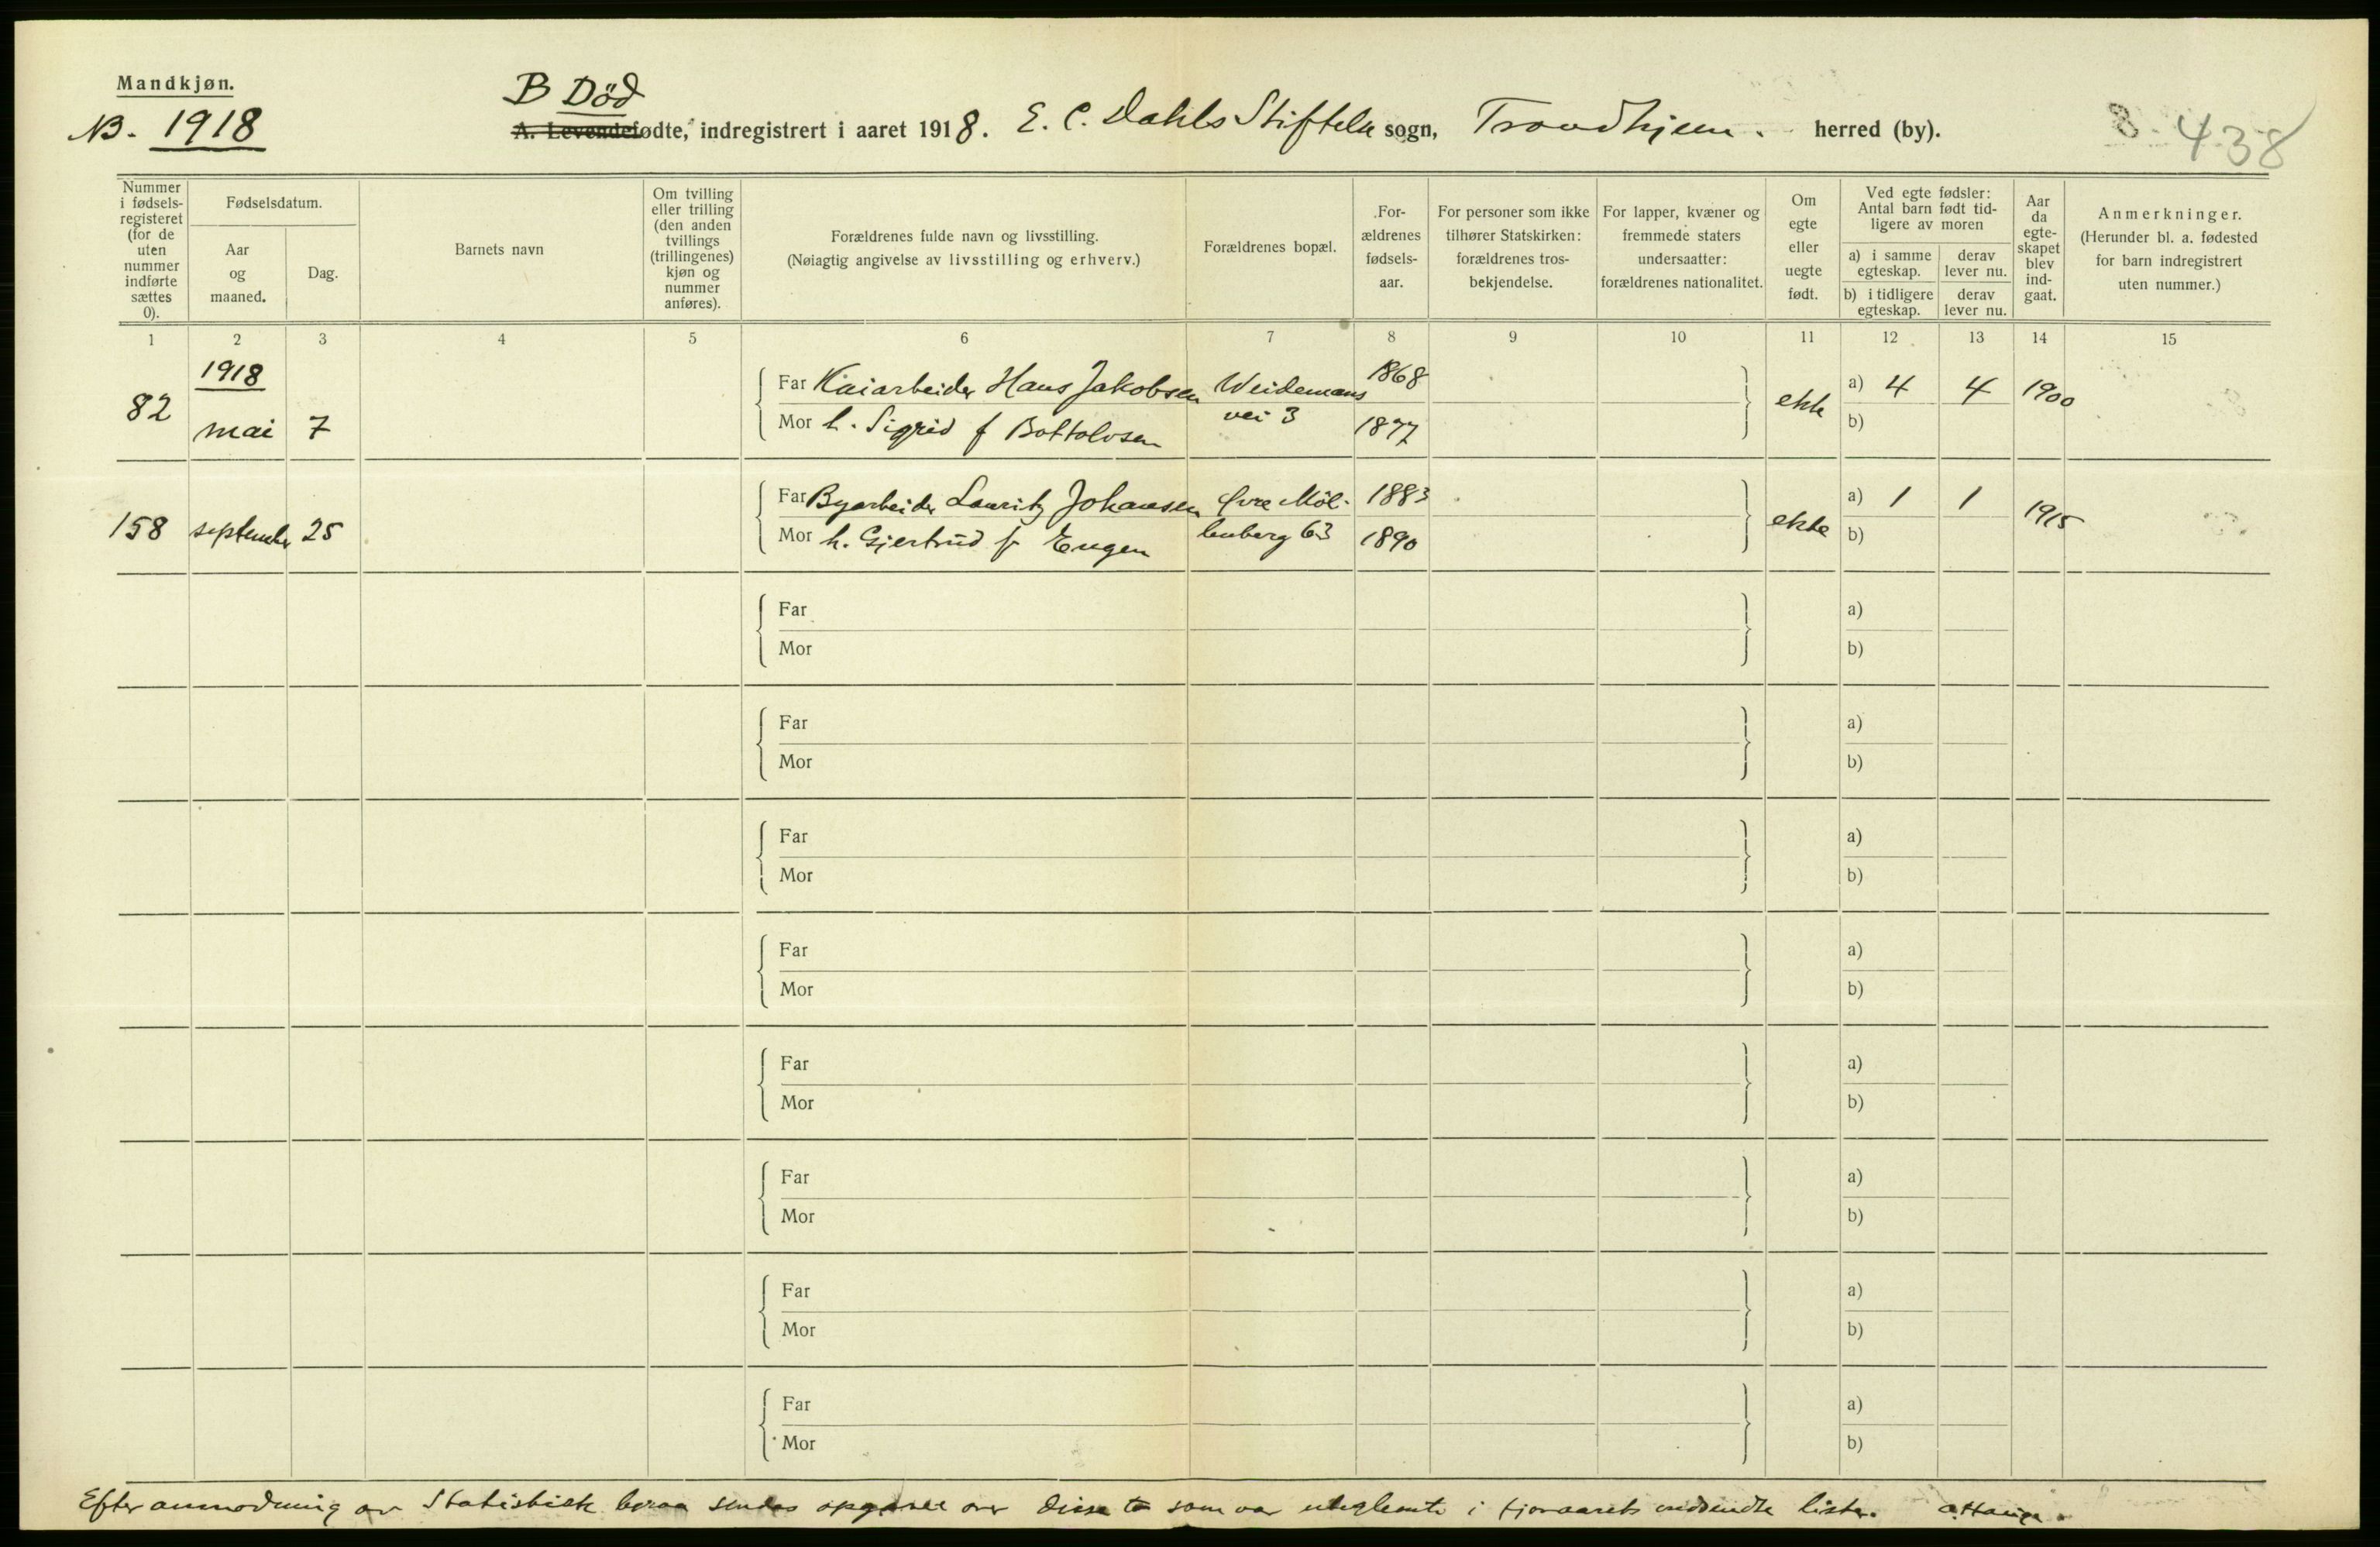 Mandkjøn.
B. 1918
B Död
A. Levendefødte, indregistrert i aaret 1918. E. C. Dahls Stiftelse sogn, Trondhjem. herred (by).
438
Nummer i fødsels-registeret (for de uten nummer indførte sættes 0).
Fødselsdatum.
Aar og maaned.
Dag.
Barnets navn
Om tvilling eller trilling (den anden tvillings (trillingenes) kjøn og nummer anføres).
Forældrenes fulde navn og livsstilling.
(Nøiagtig angivelse av livsstilling og erhverv.)
Forældrenes bopæl.
For-ældrenes fødsels-aar.
For personer som ikke tilhører Statskirken: forældrenes tros-bekjendelse.
For lapper, kvæner og fremmede staters undersaatter: forældrenes nationalitet.
Om egte eller uegte født.
Ved egte fødsler: Antal barn født tid-ligere av moren
a) i samme egteskap.
derav lever nu.
b) i tidligere egteskap.
derav lever nu.
Aar da egte-skapet blev ind-gaat.
Anmerkninger.
(Herunder bl. a. fødested for barn indregistrert uten nummer.)
1 2 3 4 5 6 7 8 9 10 11 12 13 14 15
1918
82 mai 7
Far Kaiarbeider Hans Jakobsen Weidemans 1868
Mor h. Sigrid f Bottolvsen vei 3 1877
ekte a) 4 4 1900
b)
158 september 25
Far Byarbeider Lauritz Johansen Øvre Möl- 1883
Mor h. Gjertrud f Engen lenberg 63 1890
ekte a) 1 1 1915
b)
Far a)
Mor b)
Far a)
Mor b)
Far a)
Mor b)
Far a)
Mor b)
Far a)
Mor b)
Far a)
Mor b)
Far a)
Mor b)
Far a)
Mor b)
Efter anmodning av Statistisk byraa sendes opgave over disse to som var uteglemt i fjoraarets indsendte lister. A. Hauge.